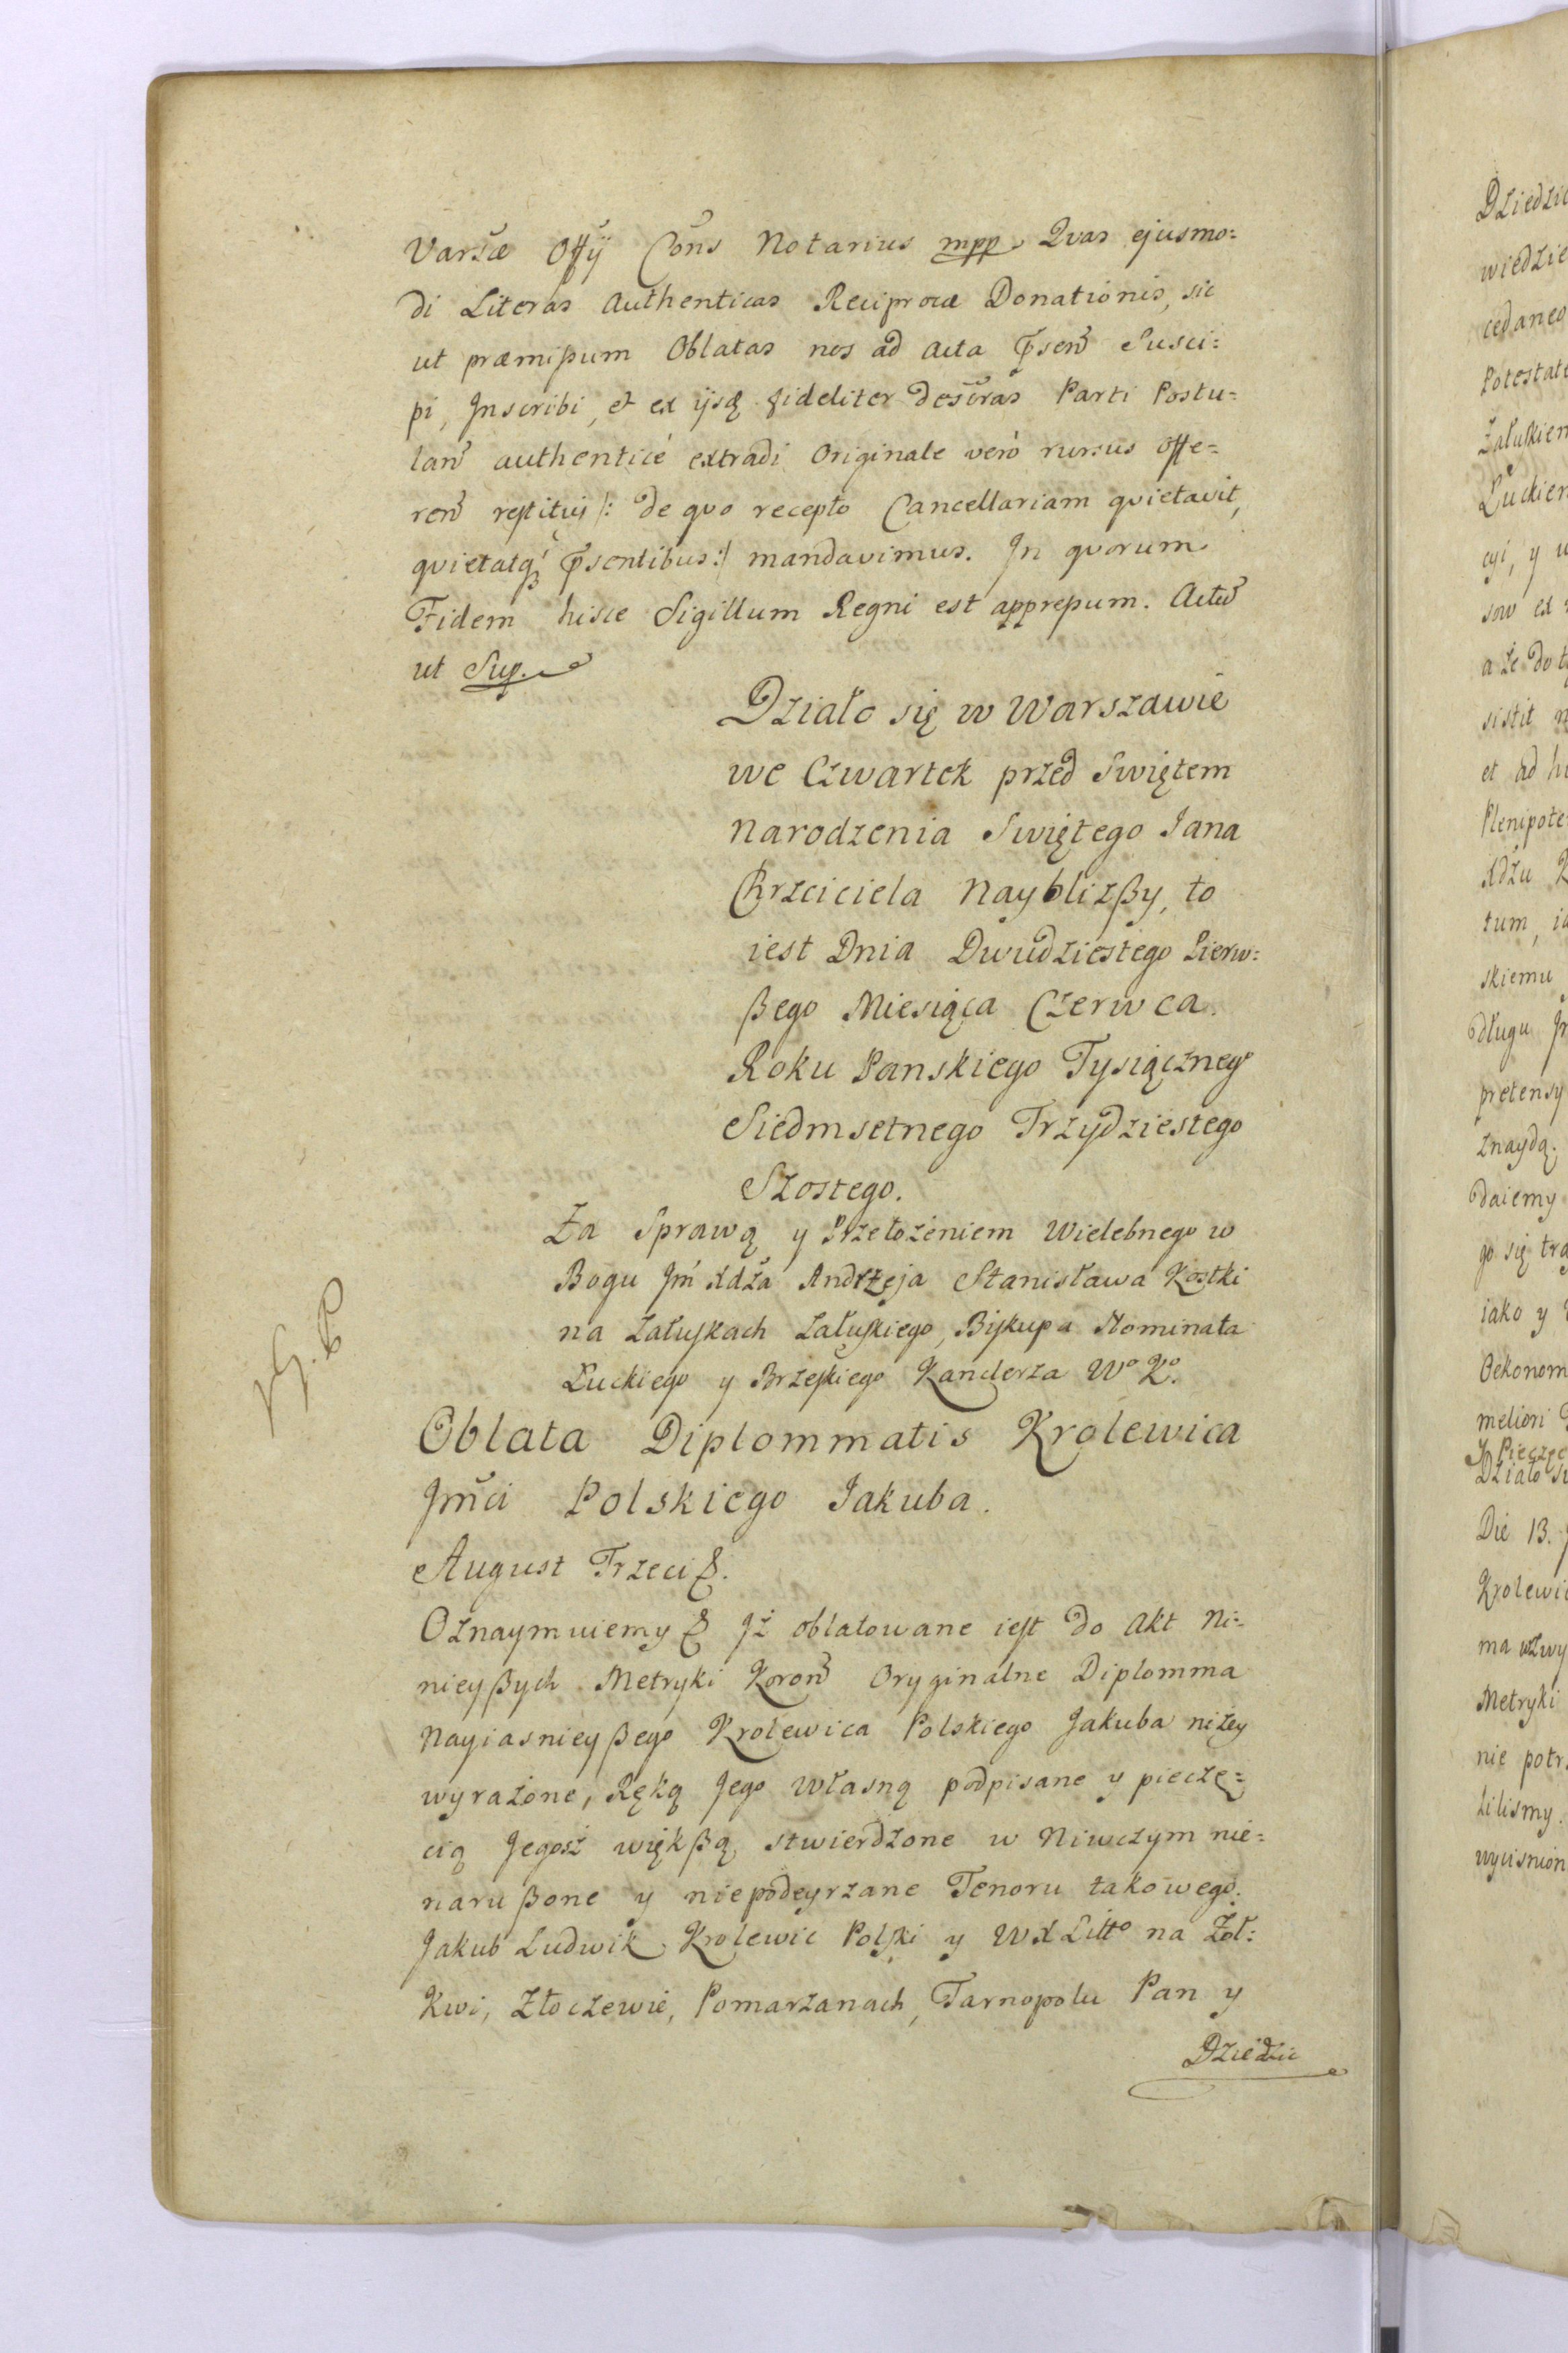 Varsæ Offÿ Cons̃ Notarius mpp. Qvas ejusmo=
di Literas Authenticas Reciprocæ Donationis, sic
ut præmißum Oblatas nos ad Acta Psen̄ Susci=
pi, Inscribi, et ex ijsq fideliter descras Parti Postu=
lan̄ authenticé extradi Originale veró rursus offe=
ren̄ restitui /: de qvo recepto Cancellariam qvietavit,
qvietatq Psentibus :/ mandavimus. In qvorum
Fidem hisce Sigillum Regni est appreßum. Actū
ut Sup.
Działo się w Warszawie
we Czwartek przed Swiętem
Narodzenia Swiętego Iana
Chrzciciela Nayblizßy, to
iest Dnia Dwudziestego Pierw=
ßego Miesiąca Czerwca.
Roku Panskiego Tysiącznego
Siedmsetnego Trzydziestego
Szostego.
Za Sprawą y Przełożeniem Wielebnego w
Bogu Jm̃ Xdza Andrzeja Stanisława Kostki
na Załuskach Załuskiego, Biskupa Nominata
Łuckiego y Brzeskiego Kanclerza Wo Ko.
Oblata Diplommatis Krolewica
Jm̃ci Polskiego Iakuba.
August Trzeci &.
Oznaymuiemy & Iż oblatowane iest do Akt Ni=
nieyßych Metryki Koron̄ Oryginalne Diplomma
Nayiasnieyßego Krolewica Polskiego Jakuba niżey
wyrażone, Ręką Jego Własną podpisane y pieczę=
cią Jegosz więkßą stwierdzone w Niwczym nie=
narußone y niepodeyrzane Tenoru takowego.
Jakub Ludwik Krolewic Polski y WX Litto na Żoł=
kwi, Złoczewie, Pomarzanach, Tarnopolu Pan y
Dziedzic
Dziedzic
wiedzie
cedaneo
Potestat
Załuskiem
Łuckiem
cyi, y
sow ex
a że do
sistit
et ad
Plenipote
Xdzu
tum,
skiemu
długu
pretensy
znaydą.
daiemy
go się
iako y
Oekonom
meliori
Działo
Die 13.
Krolewic
ma
Metryki
nie
lilismy.
wycisnion